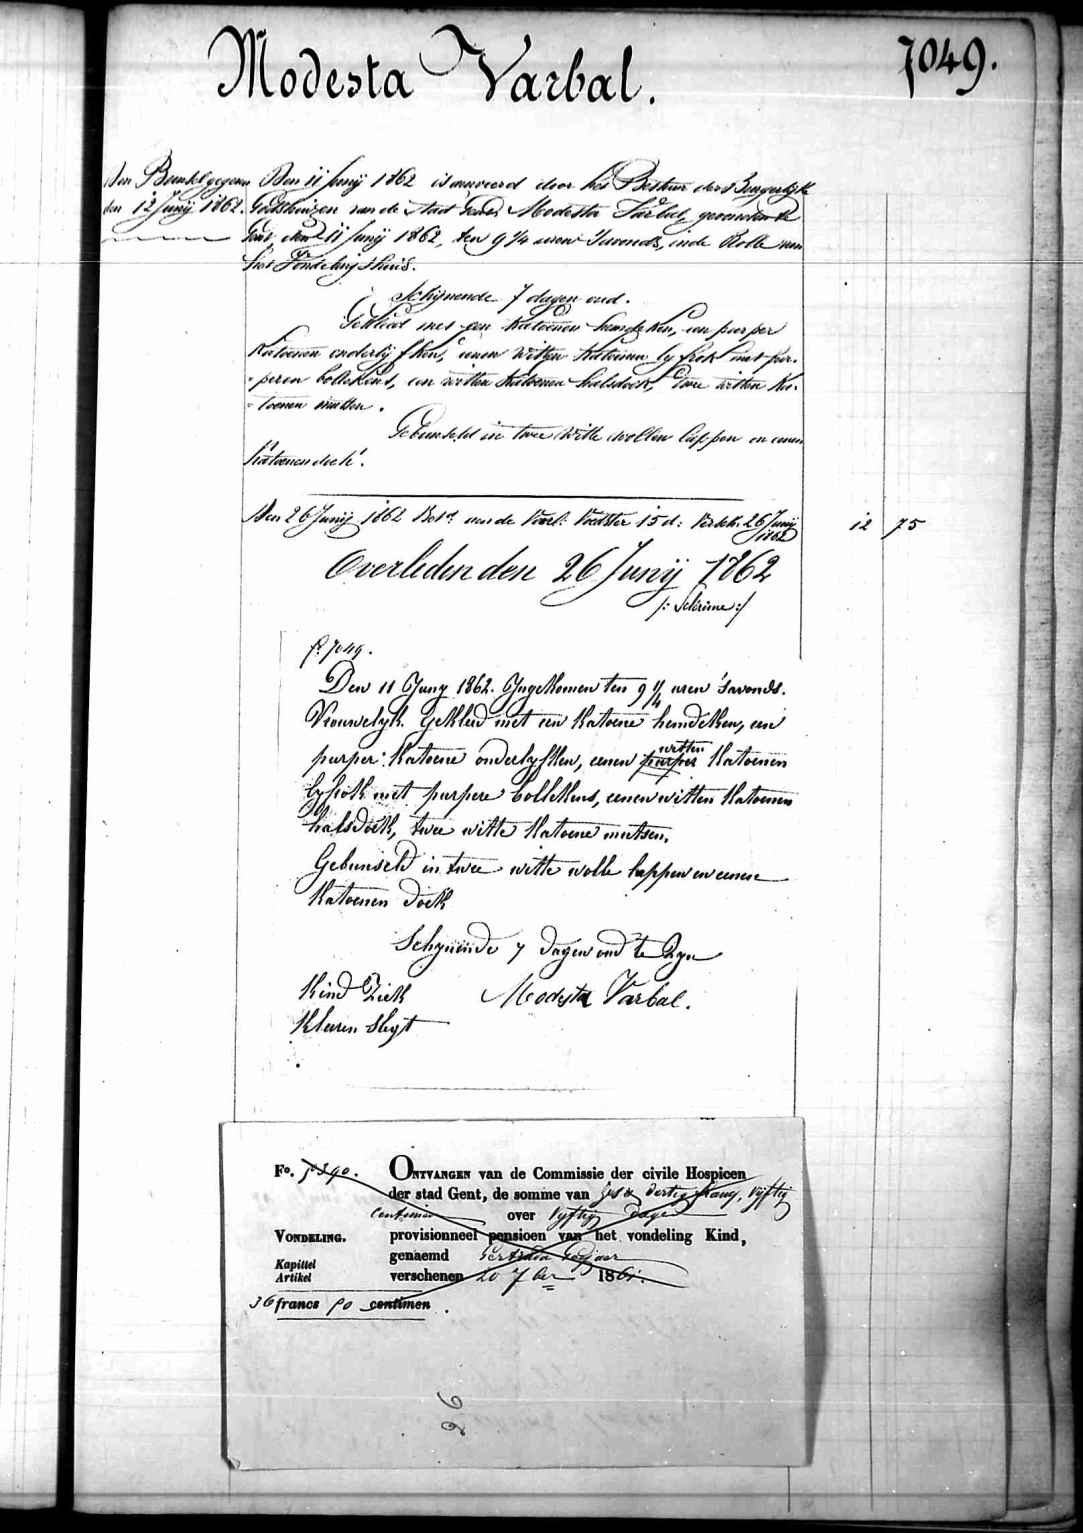 Modesta Varbal.
7049.
Den Bunsel gegeven
den 12 Junij 1862.
Den 11 Junij 1862 is aanveerd door het Bestuur der Burgerlijke
Godshuizen van de stad Gend, Modesta Varbal, gevonden te
Gent, den 11 Junij 1862, ten 9 1/4 uren 's avonds, in de Rolle van
het Vondelingshuis.
Schijnende 7 dagen oud.
Gekleed met een katoenen hemdeken, een purper
katoenen onderlijfken, eenen witten katoenen lyfrok met pur-
-peren bollekens, een witten katoenen halsdoek, twee witten ka-
-toenen mutsen.
Gebunseld in twee witte wollen lappen en eenen
katoenen doek.
Den 26 Junij 1862 Bet.d aan de Voedster 15 d: Versch. 26 Junij
1862
12 75
Overleden den 26 Junij 1862
fº 7049.
Den 11 Juny 1862. Ingekomen ten 9 1/4 uren 's avonds.
Vrouwelyk gekleed met een katoene hemdeken, een
purper katoene onderlyfken, eenen purper witten katoenen
lyfrok met purpere bollekens, eenen witten katoenen
halsdoek, twee witte katoene mutsen.
Gebunseld in twee witte wolle lappen en eenen
katoenen doek
Schynende 7 dagen oud te zyn
Kind Ziek Modesta Varbal.
Kleeren slegt
Fº. 5390.
Ontvangen van de Commissie der civile Hospicen
der stad Gent, de somme van zes en dertig frang, vyftig
centimen over vyftig dage
Vondeling.
provisionneel pensioen van het vondeling Kind,
genaemd Gertruda
Kapittel
Artikel
verschenen 20 7ber 1861.
36 francs 50 centimen.
26